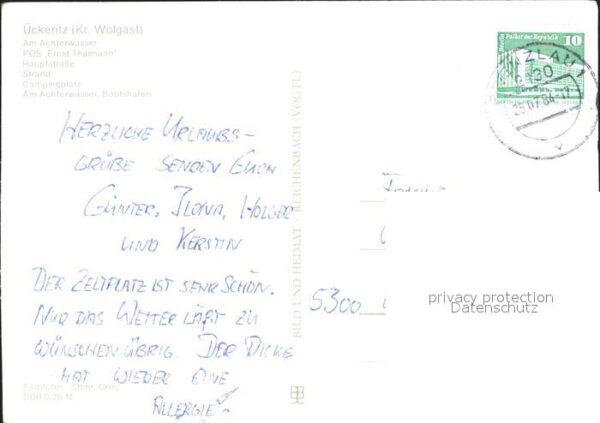 Ückeritz (Kr. Wolgast)
Am Achterwasser
POS „Ernst Thälmann"
Hauptstraße
Strand
Campingplatz
Am Achterwasser, Bootshafen
HERZLICHE URLAUBS-
GRÜßE SENDEN EUCH
GÜNTER, ILONA, HOLGER
UND KERSTIN
DER ZELTPLATZ IST SEHR SCHÖN.
NUR DAS WETTER LÄßT ZU
WÜNSCHEN ÜBRIG. DER DICKE
HAT WIEDER EINE
ALLERGIE!
Farbfotos:
DDR 0,20 M
BILD UND HEIMAT REICHENBACH (VOGTL)
Berlin Palast der Republik 10
ZLAU 1
2130
25.07.84-17
5300
privacy protection
Datenschutz